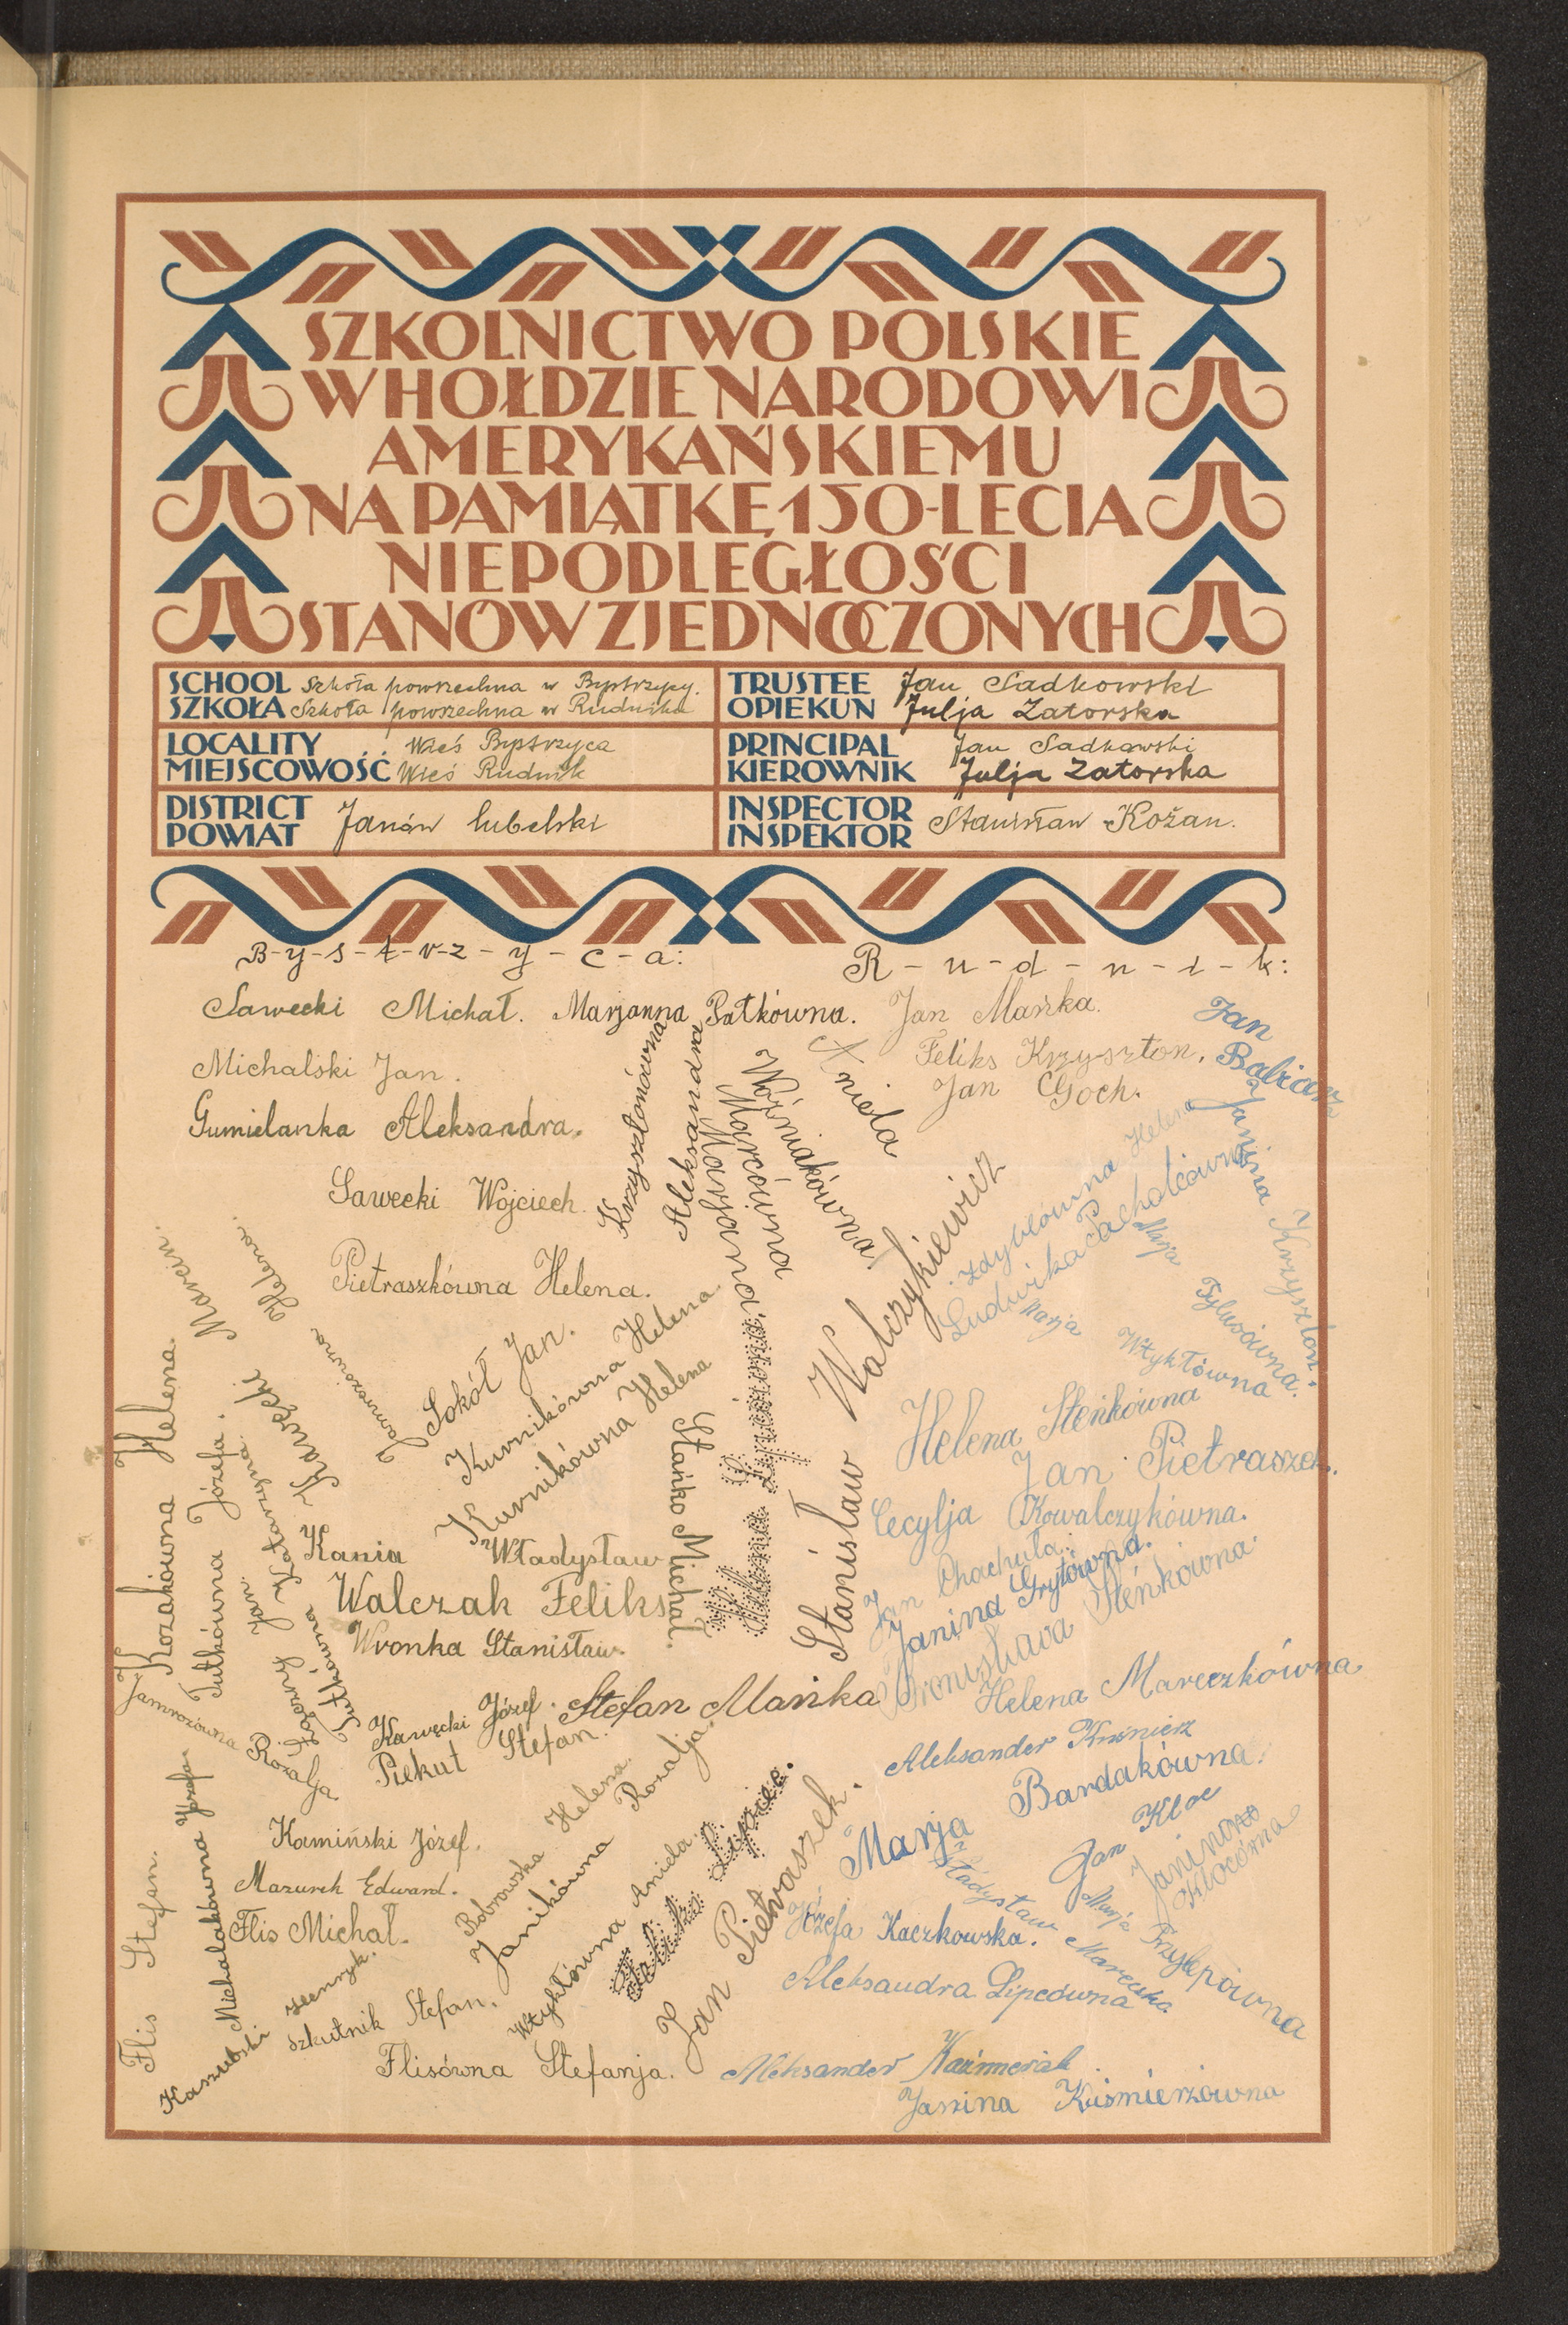 SZKOLNICTWO POLSKIE
W HOŁDZIE NARODOWI
AMERYKAŃSKIEMU
NA PAMIĄTKĘ 150-LECIA
NIEPODLEGŁOŚCI
STANÓW ZJEDNOCZONYCH
SCHOOL
SZKOŁA
Szkoła powszechna w Bystrzycy.
Szkoła powszechna w Rudniku
TRUSTEE
OPIEKUN
Jan Sadkowski
Julja Zatorska
LOCALITY
MIEJSCOWOŚĆ
Wieś Bystrzyca
Wieś Rudnik
PRINCIPAL
KIEROWNIK
Jan Sadkowski
Julja Zatorska
DISTRICT
POWIAT
Janów lubelski
INSPECTOR
INSPEKTOR
Stanisław Kożan.
B-y-s-t-r-z-y-c-a:
Sawecki Michał.
Marjanna Patkówna.
Michalski Jan.
Gumielanka Aleksandra.
Sawecki Wojciech.
Pietraszkówna Helena.
Krzysztonówna
Aleksandra
Marcówna
Marjanna
Woźniakówna
Aniela
Sokół Jan.
Kurnikówna Helena
Kurnikówna Helena
Stańko Michał.
Helena Lipcówna
Stanisław Walczykiewicz
Kozakówna Helena.
Tutkówna Józefa.
Kawęcki Marcin.
Jamrozówna Helena.
Tutkówna Katarzyna.
Jan.
Kania Władysław
Walczak Feliks
Wronka Stanisław.
Stefan Mańka
Kawęcki Józef.
Piekut Stefan.
Jamrozówna Rozalja
Kamiński Józef.
Mazurek Edward.
Flis Michał.
Flis Stefan.
Michalakówna Józefa
Kaszubski Henryk.
Szkutnik Stefan.
Bobrowska Helena
Janikówna Rozalja.
Wtykłówna Aniela.
Feliks Lipiec.
Jan Pietraszek.
Flisówna Stefanja.
R-u-d-n-i-k:
Jan Mańka.
Feliks Krzyszton,
Jan Goch.
Jan Babiarz
Janina Krzyszton.
Zdybłówna Helena
Ludwika Pachołcówna
Marja Tylusówna.
Marja Wtykłówna
Helena Steńkówna
Jan Pietraszek.
Cecylja Kowalczykówna.
Jan Chachuła.
Janina Grytówna.
Bronisława Steńkówna.
Helena Mareczkówna
Aleksander Kuśnierz
Marja Bardakówna.
Jan Kloc
Janina
Klocówna
Władysław Mareczka
Marja Przylepówna
Józefa Kaczkowska.
Aleksandra Lipcówna
Aleksander Kaźmierak.
Janina Kuśmierzówna